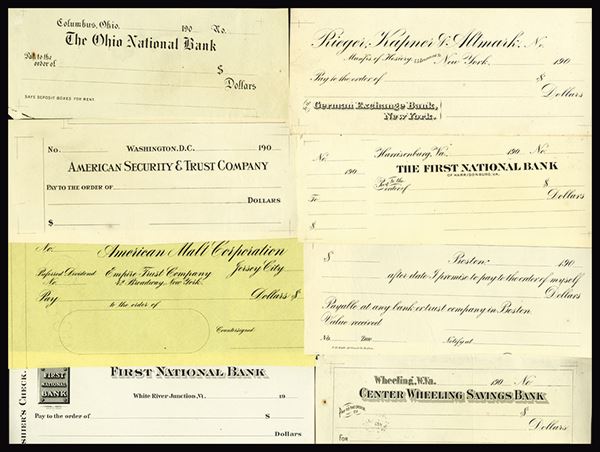 Columbus, Ohio. 190 No.
The Ohio National Bank
Pay to the
order of
$
Dollars
SAFE DEPOSIT BOXES FOR RENT.
Rieger, Kapner & Altmark, No.
Manfs of Hosiery New York, 190
Pay to the order of $
Dollars
German Exchange Bank,
New York.
No. WASHINGTON, D.C. 190
AMERICAN SECURITY & TRUST COMPANY
PAY TO THE ORDER OF
DOLLARS
$
Harrisonburg, Va. 190 No.
No.
190
THE FIRST NATIONAL BANK
OF HARRISONBURG, VA.
Pay To the
Order of $
To Dollars
$
No. American Malt Corporation
Preferred Dividend Empire Trust Company Jersey City
No. 42 Broadway, New York.
Pay Dollars $
to the order of
Countersigned
$ Boston, 190
after date I promise to pay to the order of myself
Dollars
Payable at any bank or trust company in Boston
Value received
No. Due Notify at
SHIER'S CHECK.
FIRST
NATIONAL
BANK
FIRST NATIONAL BANK
White River Junction, Vt. 19
Pay to the order of $
Dollars
Wheeling, W.Va. 190 No.
CENTER WHEELING SAVINGS BANK
PAY TO THE
ORDER OF
$
Dollars
FOR